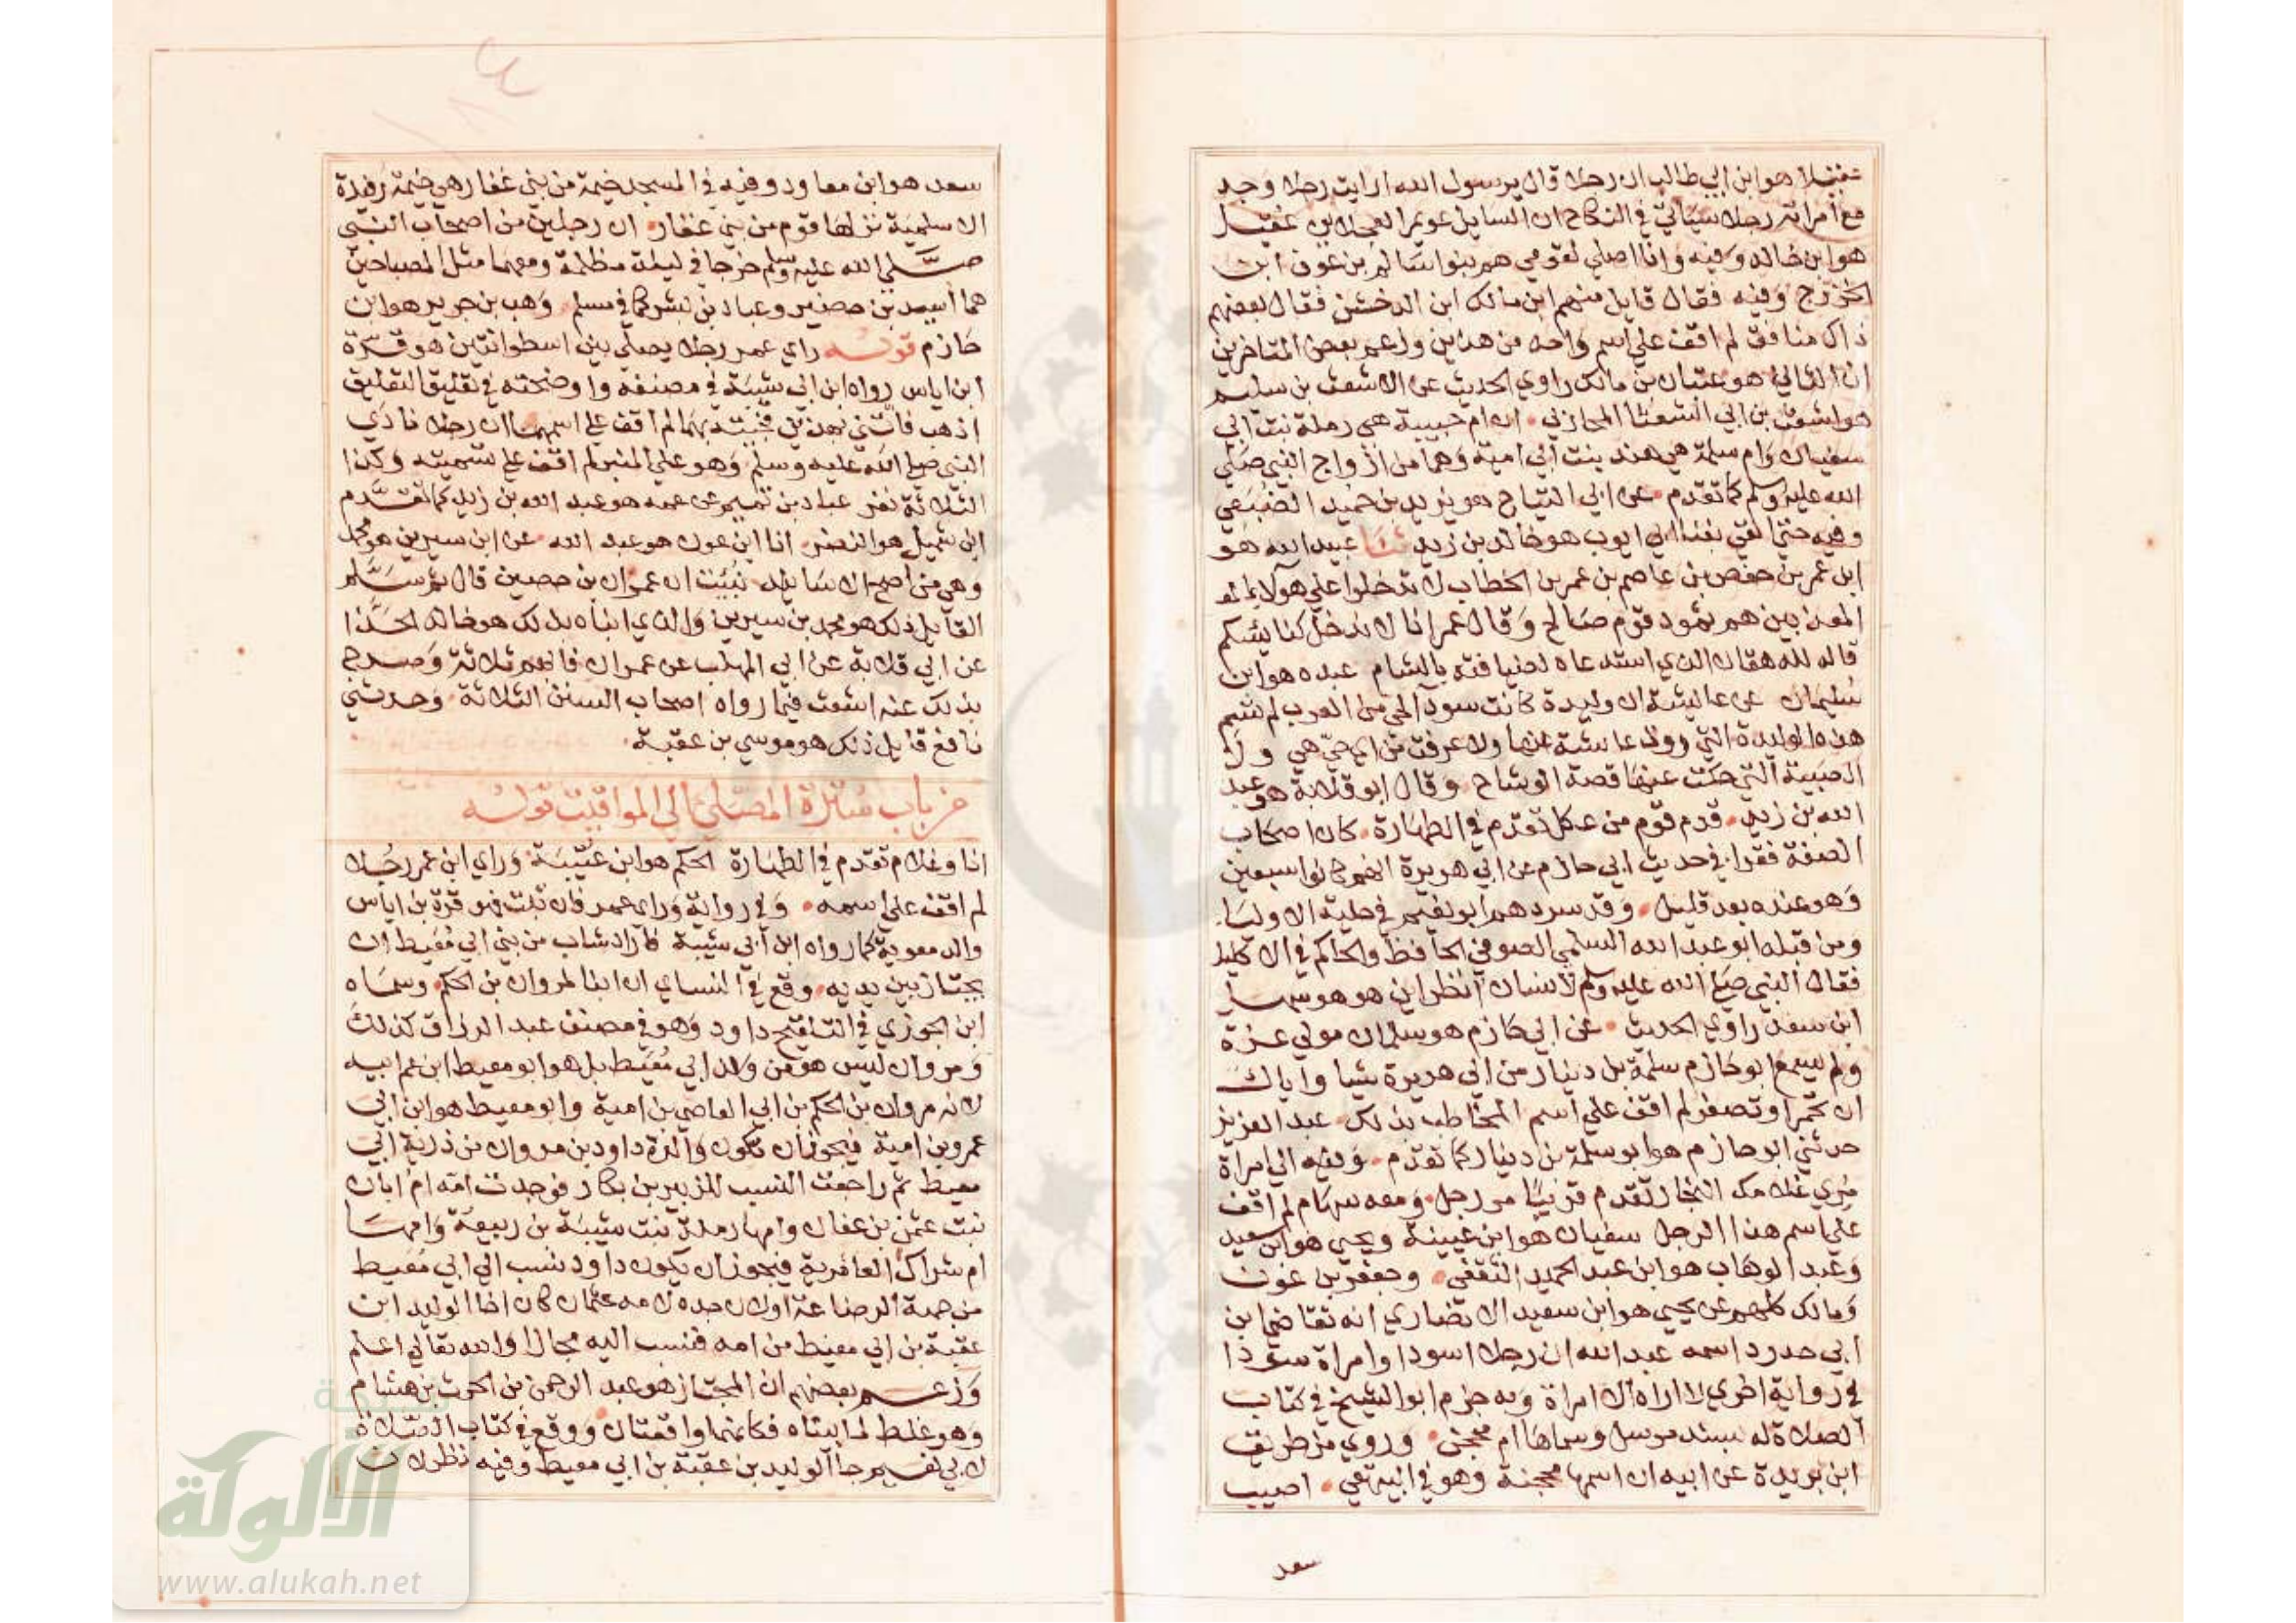 عقيلا هو ابن ابي طالب ان رجلا قال يرسول الله ارايت رجلا وجد
مع امراته رجلا سياتي في النكاح ان السايل عويمر العجلاني عقيل
هو ابن خالد وفيه وانا اصلي لقومي هم بنو سالم بن عوف ابن
الخزرج وفيه فقال قايل منهم اين مالك ابن الدخشن فقال بعضهم
ذاك منافق لم اقف علي اسم واحد من هذين وزعم بعض المتاخرين
ان الثاني هو عتبان بن مالك راوي الحديث عن الاشعث بن سليم
هو اشعث بن ابي الشعثا المحازبي ان ام حبيبة هي رملة بنت ابي
سفيان وام سلمة هي هند بنت ابي امية وهما من ازواج النبي صلي
الله عليه وسلم كما تقدم عن ابي التياح هو يزيد بن حميد الضبعي
وفيه حتي القي بفنا ابي ايوب هو خالد بن زيد ثنا عبيد الله هو
ابن عمر بن حفص بن عاصم بن عمر بن الخطاب لا تدخلوا علي هولاء
المعذبين هم ثمود قوم صالح وقال عمر انا لا ندخل كنايسكم
قاله للدهقان الذي استدعاه لضيافته بالشام عبده هو ابن
سليمان عن عايشة ان وليدة كانت سودا لحي من العرب لم تسم
هذه الوليدة التي روت عايشة عنها ولا عرفت من اي حي هي ولا
الصبية التي حكت عنها قصة الوشاح وقال ابو قلابة هو عبد
الله بن زيد قدم قوم من عكل تقدم في الطهارة كان اصحاب
الصفة فقرا في حديث ابي حازم عن ابي هريرة انهم كانوا سبعين
وهو عنده بعد قليل وقد سردهم ابو نعيم في حلية الاوليا
ومن قبله ابو عبد الله السلمي الصوفي الحافظ والحاكم في الاكليل
فقال النبي صلي الله عليه وسلم لانسان انظر اين هو هو سهل
ابن سعد راوي الحديث عن ابي حازم هو سلمان مولي عزة
ولم يسمع ابو حازم سلمة بن دينار من ابي هريرة شيا واياك
ان تحمر او تصفر لم اقف علي اسم المخاطب بذلك عبد العزيز
حدثني ابو حازم هو ابو سلمة بن دينار كما تقدم وفيه الي امراة
مري غلامك النجار تقدم قريبا مر رجل ومعه سهام لم اقف
علي اسم هذا الرجل سفيان هو ابن عيينة ويحيي هو ابن سعيد
وعبد الوهاب هو ابن عبد الحميد الثقفي وجعفر بن عون
ومالك كلهم عن يحيي هو ابن سعيد الانصاري انه تقاضي ابن
ابي حدرد اسمه عبد الله ان رجلا اسودا وامراة سودا
في رواية اخري لا اراه الا امراة وبه جزم ابو الشيخ في كتاب
الصلاة له بسند مرسل وسماها ام محجن وروي من طريق
ابن بريدة عن ابيه ان اسمها محجنة وهو في البيهقي اصيب
سعد
سعد هو ابن معاذ وفيه في المسجد خيمة من بني غفار هي خيمة رفيدة
الاسلمية نزلها قوم من بني غفار ان رجلين من اصحاب النبي
صلي الله عليه وسلم خرجا في ليلة مظلمة ومعهما مثل المصباحين
هما اسيد بن حضير وعباد بن بشر كما في مسلم وهب بن جرير هو ابن
حازم قوله راي عمر رجلا يصلي بين اسطوانتين هو قرة
ابن اياس رواه ابن ابي شيبة في مصنفه واوضحته في تغليق التعليق
اذهب فاتني بهذين فجيته بهما لم اقف علي اسمهما ان رجلا نادي
النبي صلي الله عليه وسلم وهو علي المنبر لم اقف علي تسميته وكذا
الثلاثة نفر عباد بن تميم عن عمه هو عبد الله بن زيد كما تقدم
ابن شميل هو النضر انا ابن عون هو عبد الله عن ابن سيرين هو محمد
وهي من اصح الاسانيد نبيت ان عمران بن حصين قال ثم سلم
القايل ذلك هو محمد بن سيرين والذي انباه بذلك هو خالد الحذا
عن ابي قلابة عن ابي المهلب عن عمران فابهم ثلاثة وصرح
بذلك عنه اشعث فيما رواه اصحاب السنن الثلاثة وحدثني
نافع قايل ذلك هو موسي بن عقبة
من باب سترة المصلي الي المواقيت قوله
انا وغلام تقدم في الطهارة الحكم هو ابن عتيبة وراي ابن عمر رجلا
لم اقف علي اسمه وفي رواية وراي عمر فان ثبت فهو قرة بن اياس
والد معوية كما رواه ابن ابي شيبة فاراد شاب من بني ابي معيط ان
يجتاز بين يديه وقع في النساي ان ابنا لمروان بن الحكم وسماه
ابن الجوزي في التلقيح داود وهو في مصنف عبد الرزاق كذلك
ومروان ليس هو من ولد ابي معيط بل هو ابو معيط ابن عم ابيه
لانه مروان بن الحكم بن ابي العاصي بن امية وابو معيط هو ابن ابي
عمرو بن امية فيجوز ان تكون والدة داود بن مروان من ذرية ابي
معيط ثم راجعت النسب للزبير بن بكار فوجدت امه ام ابان
بنت عثمن بن عفان وامها رملة بنت شيبة بن ربيعة وامها
ام شراك العامرية فيجوز ان يكون داود نسب الي ابي معيط
من جهة الرضاعة اولان جده لامه عثمان كان اخا الوليد ابن
عقبة بن ابي معيط من امه فنسب اليه مجازا والله تعالي اعلم
وزعم بعضهم ان المجتاز هو عبد الرحمن بن الحرث بن هشام
وهو غلط لما بيناه فكانهما واقعتان ووقع في كتاب الصلاة
لابي نعيم جا الوليد بن عقبة بن ابي معيط وفيه نظر لان
شبكة
الألولة
www.alukah.net